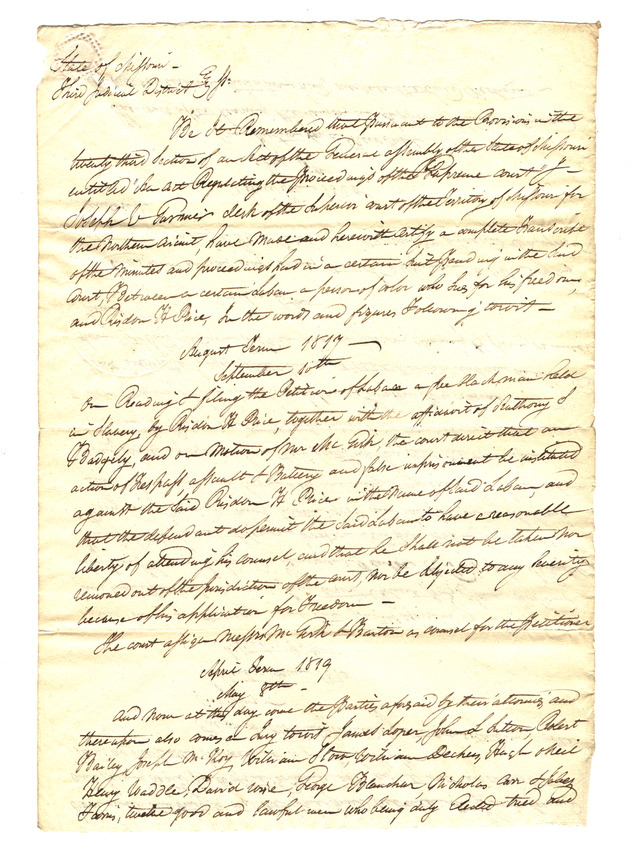 State of Missouri
Third Judicial District } ss.
Be It Remembered that Pursuant to the Provisions in the
twenty third Section of an Act of the General assembly of the State of Missouri
entitled "An Act Regulating the Proceedings of the Supreme court"
Joseph C Garnier clerk of the Superior court of the Territory of Missouri for
the Northern Circuit have Made and herewith certify a complete Transcript
of the Minutes and proceedings had in a certain suit Pending in the Said
court, Between a certain Laban a person of color who sues for his freedom,
and Risdon H Price, In the words and figures Following, towit –
August Term 1817 –
September 10th
On Reading & filing the Petition of Laban a free black man held
in Slavery, by Risdon H Price, together with the affidavit of Anthony S
Badgely, and on Motion of Mr McGirk, the court direct that an
action of Trespass, assault & Battery and false imprisonment be instituted
against the Said Risdon H Price in the Name of Said Laban, and
that the defendant do permit the Said Laban to have a reasonable
liberty of attending his counsel, and that he Shall not be taken nor
removed out of the Jurisdiction of the court, nor be Subjected to any Severity
because of his application for Freedom –
The court assign Messrs McGirk & Barton as counsel for the Petitioner
April Term 1819
May 8th –
And now at this day come the Parties aforesaid by their attornies and
thereupon also comes a Jury towit, James Loper, John S. Robert
Bailey Joseph McKoy William William Deckers, Hugh oNeil
Henry Waddle, David George Blanchar, Nicholas and
Farris, twelve good and lawful men who being duly elected tried and